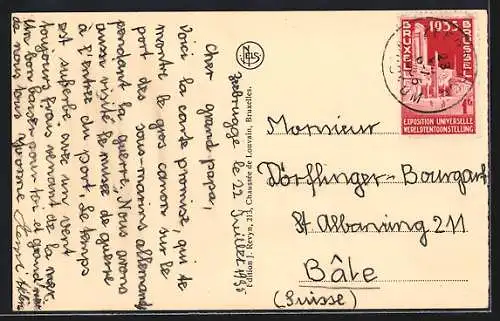 Zeebrugge le 22 Juillet 1935
Cher grand papa,
Voici la carte promise, qui te
montre le gros canon sur le
port des sous-marins allemands
pendant la guerre. Nous avons
aussi visité le musée de guerre
à l'entrée du port. Le temps
est superbe avec un vent
toujours frais venant de la mer.
Un bon baiser pour toi et grand'mère
de nous tous Yvonne
NELS
Edition J. Revyn, 213, Chaussée de Louvain, Bruxelles.
1935
BRUXELLES
BRUSSEL
EXPOSITION UNIVERSELLE
WERELDTENTOONSTELLING
Monsieur
Dörflinger-Bourgart
St Albanring 211
Bâle
(Suisse)